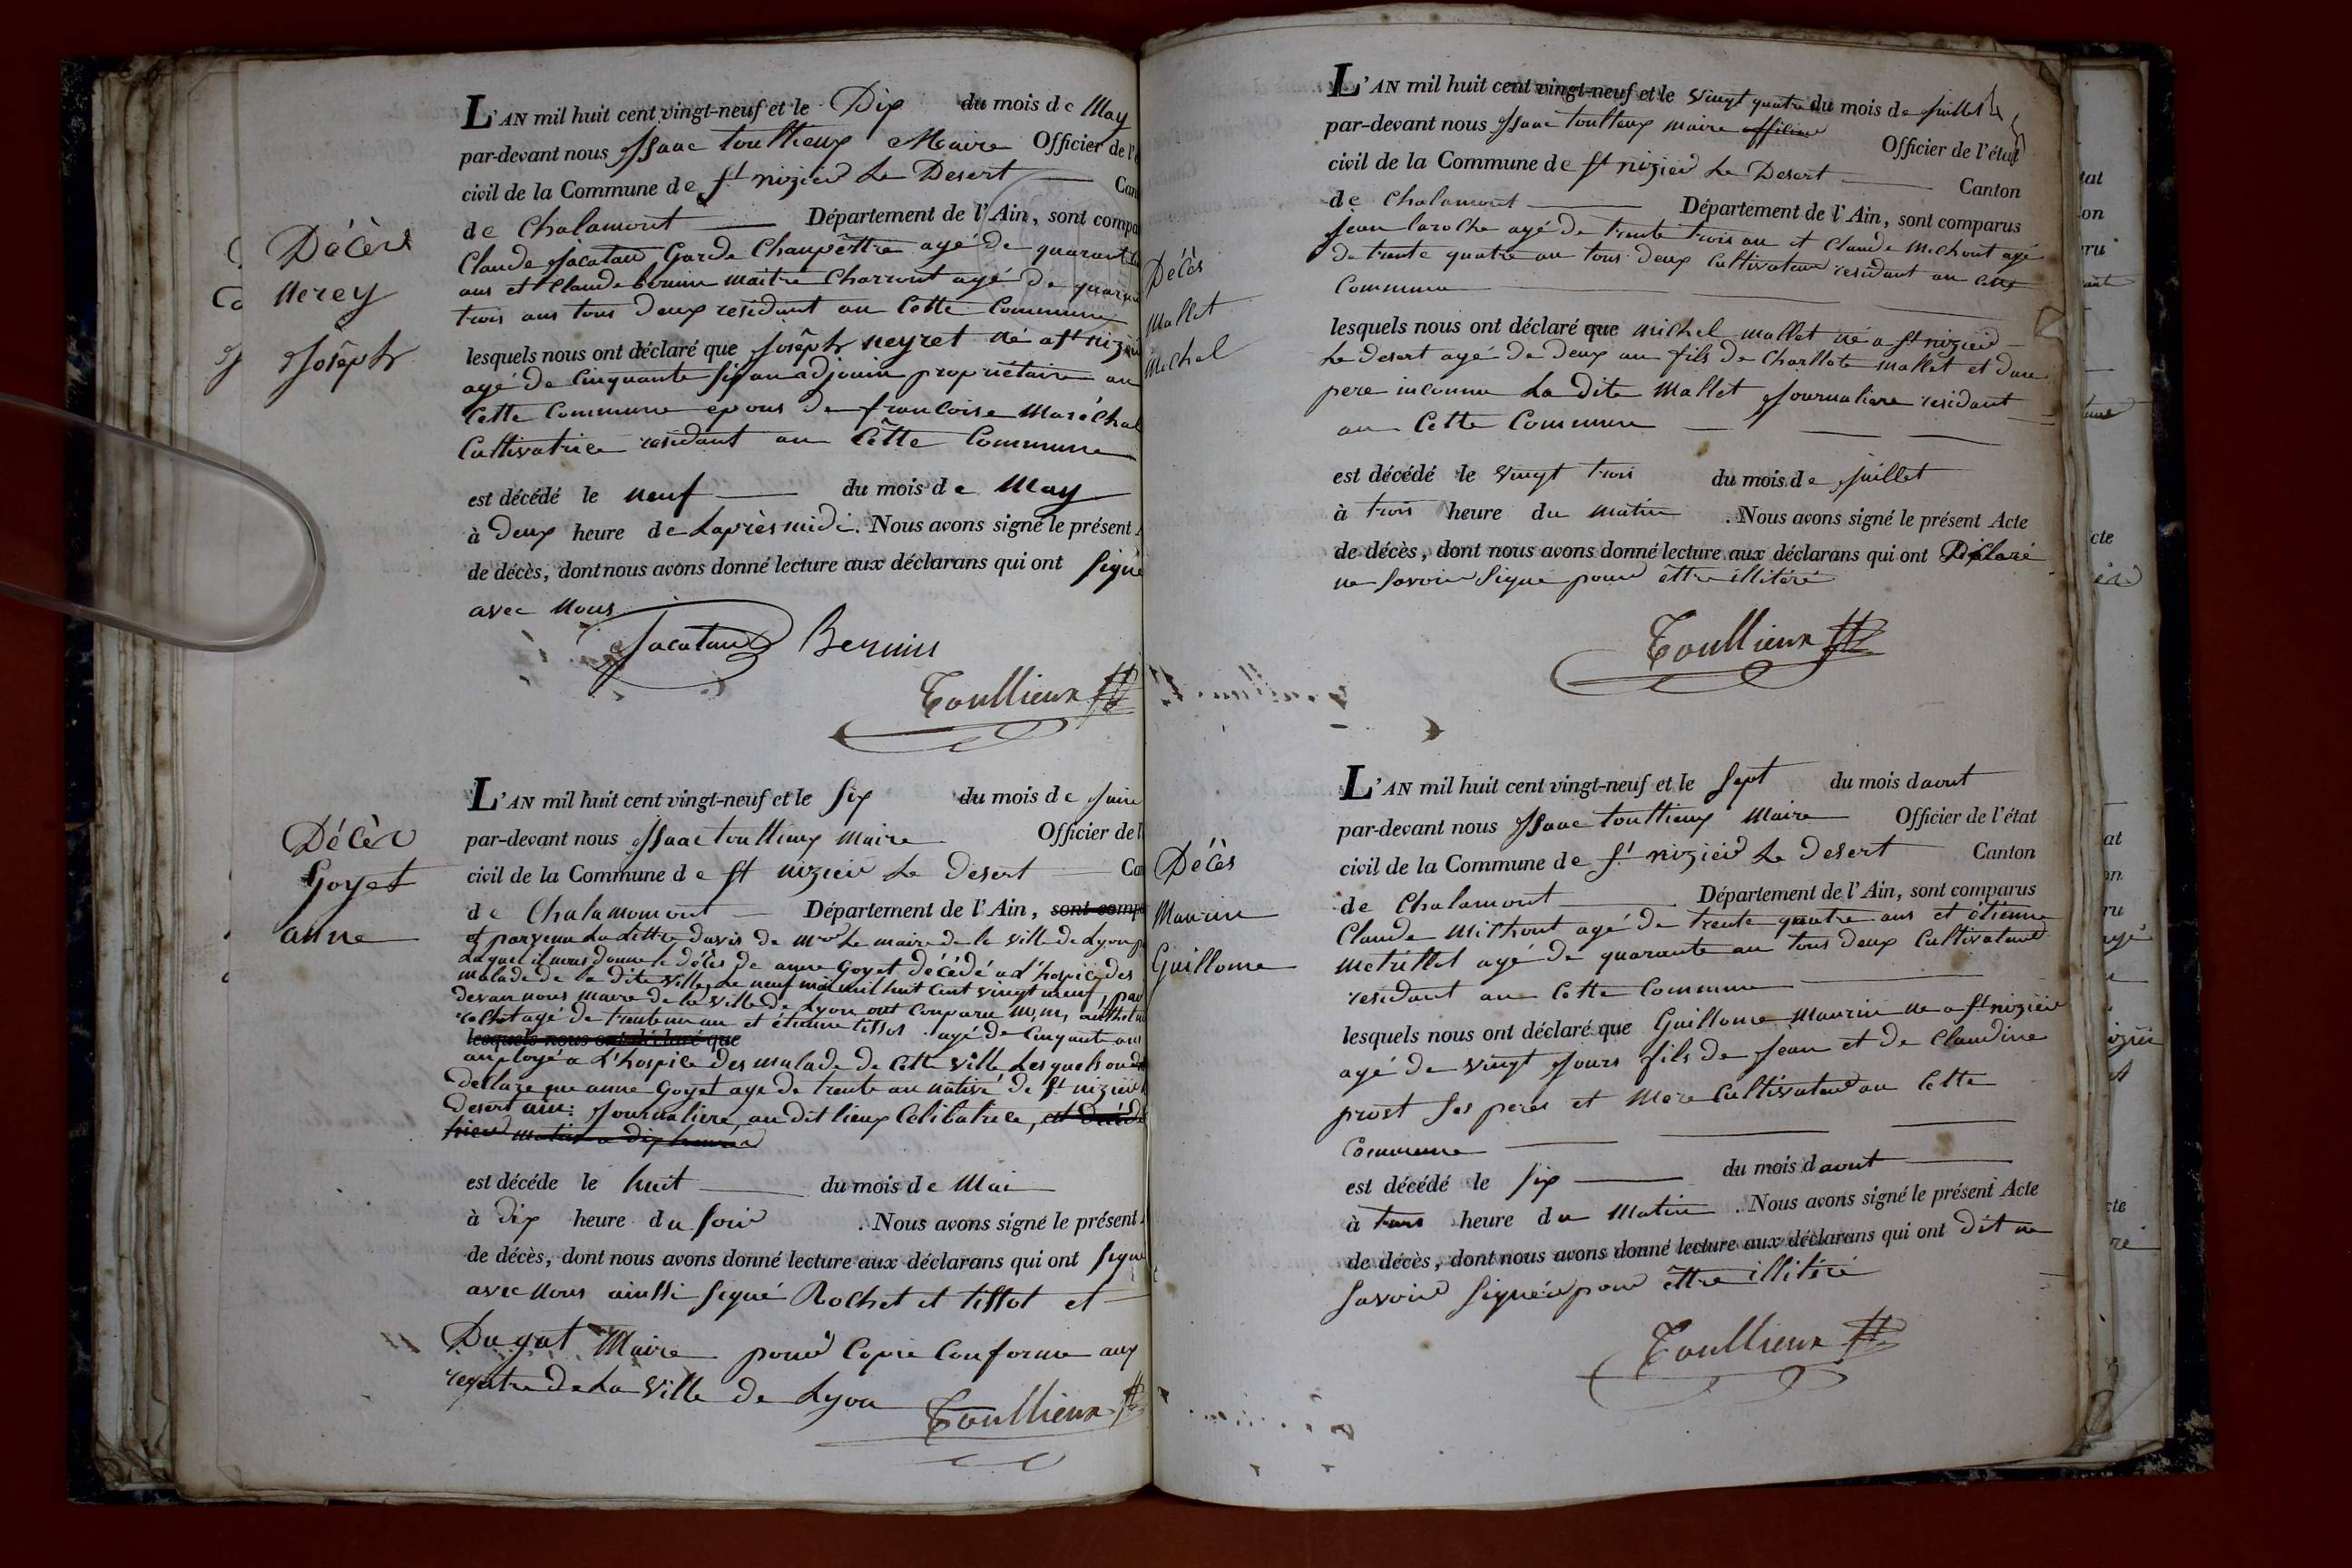 L'AN mil huit cent vingt-neuf et le Dix du mois de May
par-devant nous Isaac toullieux Maire Officier de l'é
civil de la Commune de St nizier Le Desert Can
de Chalamont Département de l'Ain, sont compa
Claude Jacatau Garde Champêttre agé de quarant
ans et Claude bernin maitre Charront agé de quaran
trois ans tous deux residant an Cette Commune
Décès
Nerey
Joseph
lesquels nous ont déclaré que Joseph neyret né a St nizi
agé de Cinquante six an adjoin propriétaire an
Cette Commune epous de francoise Maréchal
Cultivatrice residant an Cette Commune
est décédé le neuf du mois de May
à deux heure de Laprèsmidi. Nous avons signé le présent
de décès, dont nous avons donné lecture aux déclarans qui ont Signé
avec Nous
Jacatau Bernin
Toullieux
L'AN mil huit cent vingt-neuf et le Six du mois de Juin
par-devant nous Isaac toullieux Maire Officier de l
civil de la Commune de St nizier Le Desert Can
de Chalamomont Département de l'Ain, sont compa
Décès
Goyet
anne
et parvenu La Lettre davis de Mr Le maire de la ville de Lyon p
Laquel il nous donne le décès de anne Goyet décédé a L'hospice des
malade de la dite ville Le neuf mai mil huit Cent vingt neuf, par
devan nous maire de la ville de Lyon ont Comparu M,M,
rochet agé de trante un an et étienne tissot agé de Cinquante an
lesquels nous ont déclaré que
anployé a L'hospice des malade de Cette ville Lesquels on
declare que anne Goyet age de trente an native de St nizier
Desert ain: Journaliere, au dit lieux Celibatrice, est décédé
hier matin a dix heures
est décéde le huit du mois de Mai
à dix heure du Soir . Nous avons signé le présent
de décès, dont nous avons donné lecture aux déclarans qui ont Signé
avec Nous ainssi Signé Rochet et tissot et
Dugat Maire pour Copie Conforme aux
regitre de La Ville de Lyon
Toullieux
L'AN mil huit cent vingt-neuf et le vingt quatre du mois de Juillet
par-devant nous Isaac toullieux maire officier Officier de l'état
civil de la Commune de St nizier Le Desert Canton
de Chalamont Département de l'Ain, sont comparus
Jean laroche agé de trante trois an et Claude Michont agé
de trante quatre an tous deux Cultivateur residant an Cette
Commune
Décès
Mallet
Michel
lesquels nous ont déclaré que Michel mallet né a St nizier
Le desert agé de deux an fils de Charllote mallet et dun
pere inconnu La dite Mallet Journaliere residant
an Cette Commune
est décédé le vingt trois du mois de Juillet
à trois heure du Matin . Nous avons signé le présent Acte
de décès, dont nous avons donné lecture aux déclarans qui ont Déclaré
ne Savoir Signé pour êttre illitéré
Toullieux
L'AN mil huit cent vingt-neuf et le Sept du mois daout
par-devant nous Isaac toullieux Maire Officier de l'état
civil de la Commune de St nizier Le Desert Canton
de Chalamont Département de l'Ain, sont comparus
Claude Michont agé de trente quatre ans et étienne
Metrillet agé de quarante an tous deux Cultivateur
residant an Cette Commune
Décès
Maurin
Guillome
lesquels nous ont déclaré que Guillome Maurin ne a St nizier
agé de vingt Jours fils de Jean et de Claudine
prost Ses peres et Mere Cultivateur an Cette
Commune
est décédé le six du mois daout
à trois heure du Matin . Nous avons signé le présent Acte
de décès, dont nous avons donné lecture aux déclarans qui ont dit ne
Savoir Signér pour êttre illitéré
Toullieux